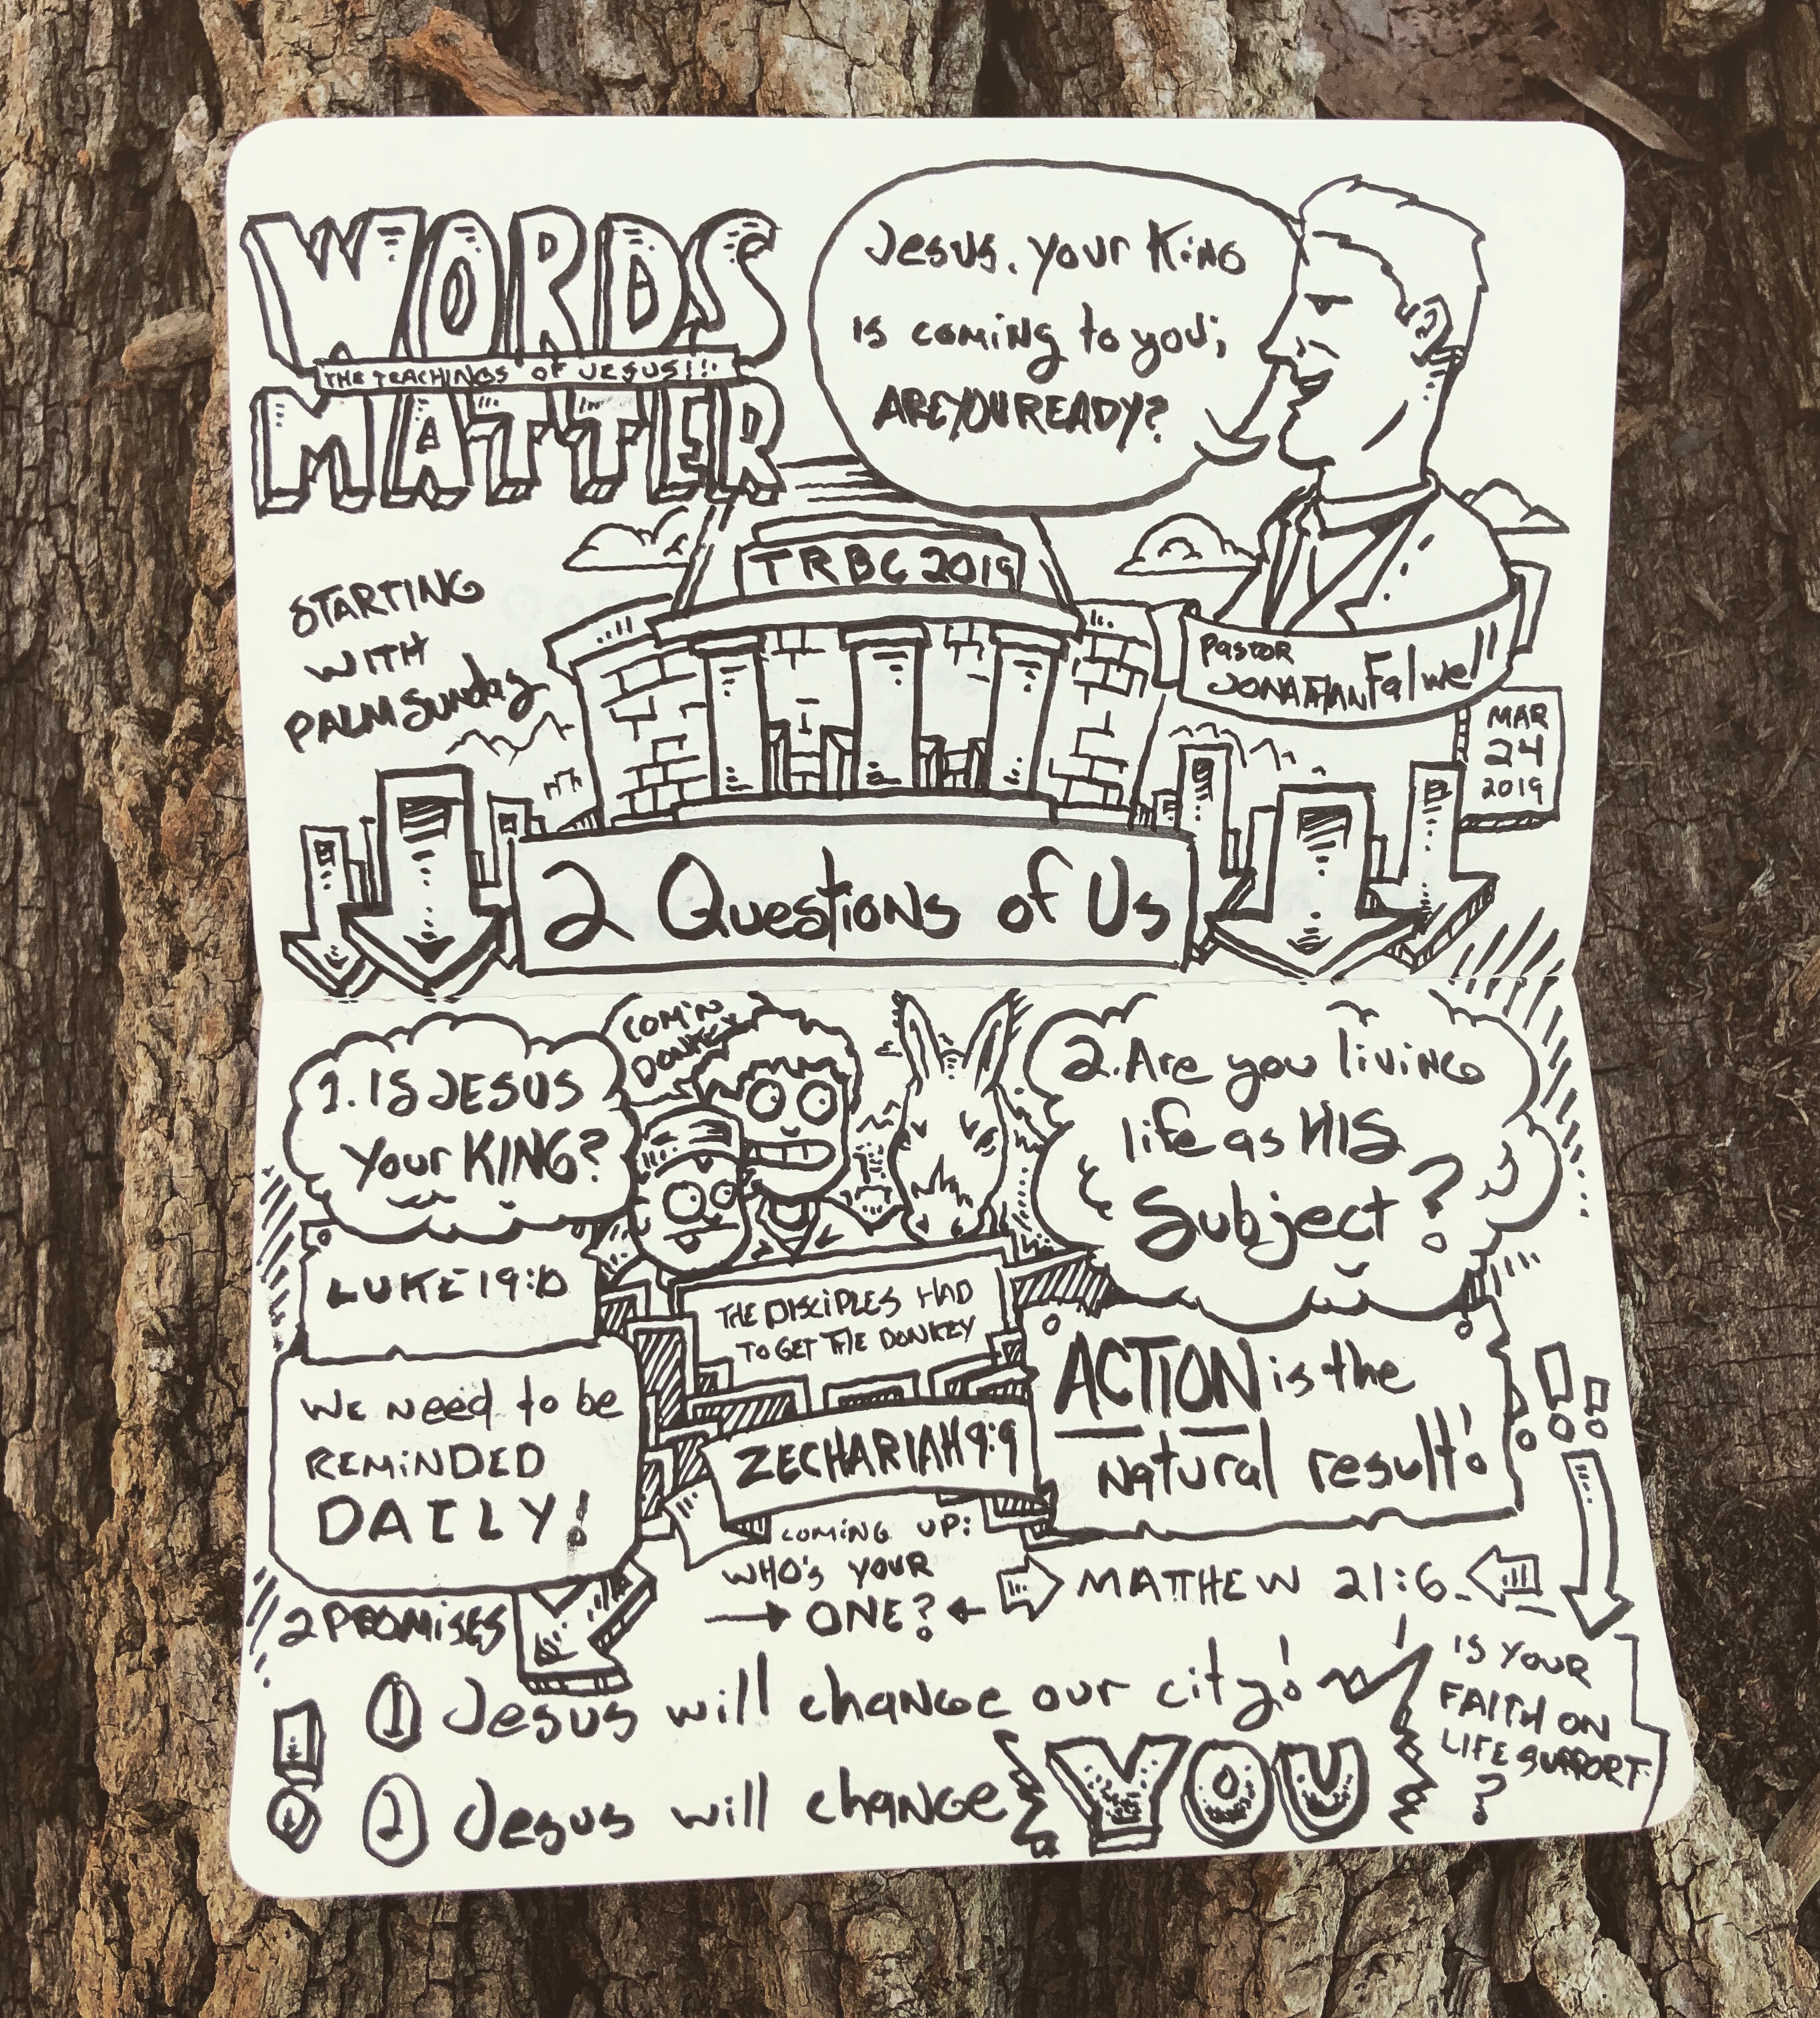 WORDS
THE TEACHINGS OF JESUS!!!
MATTER
Jesus, your King
is coming to you;
ARE YOU READY?
STARTING
WITH
PALM Sunday
TRBC 2019
Pastor
JONATHAN Falwell
MAR
24
2019
2 Questions of Us
1. IS JESUS
your KING?
COM'N
DONKEY
2. Are you living
life as HIS
Subject?
LUKE 19:10
THE DISCIPLES HAD
TO GET THE DONKEY
WE need to be
REMINDED
DAILY!
ZECHARIAH 9:9
ACTION is the
Natural result!
COMING UP:
WHO'S YOUR
ONE?
MATTHEW 21:6
2 PROMISES
1 Jesus will change our city!
2 Jesus will change YOU
IS YOUR
FAITH ON
LIFE SUPPORT
?